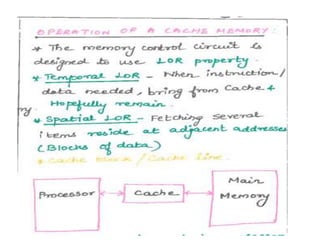 OPERATION OF A CACHE MEMORY:
* The memory control circuit is
designed to use LOR property.
* Temporal LOR - When instruction/
data needed, bring from Cache &
Hopefully remain.
* Spatial LOR - Fetching several
items reside at adjacent addresses
(Blocks of data)
* Cache block / Cache line.
Processor
Cache
Main
Memory